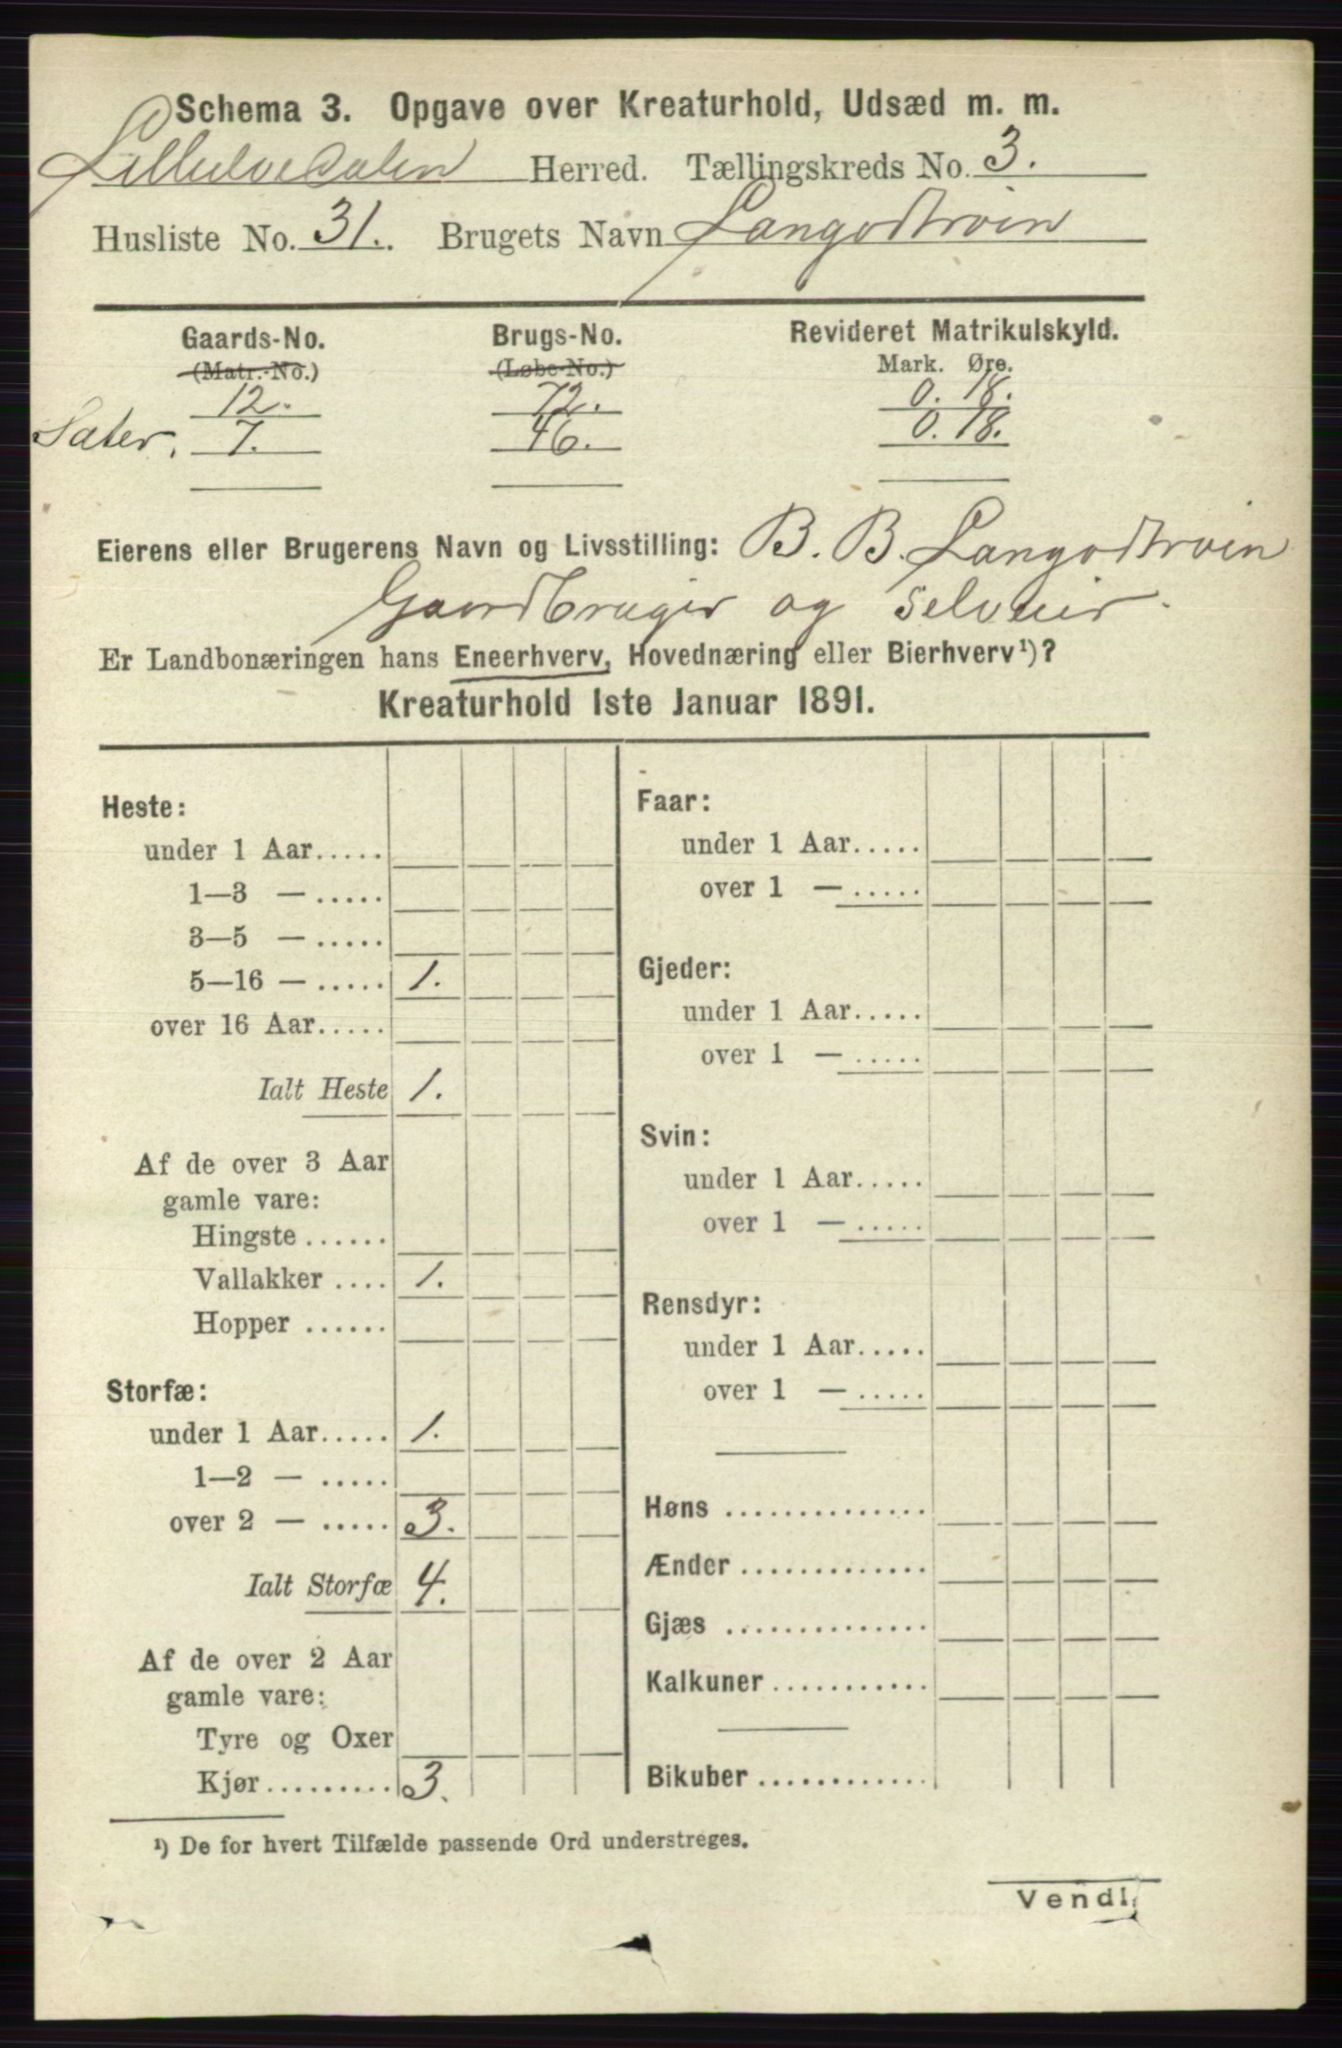 Schema 3. Opgave over Kreaturhold, Udsæd m. m.
Lilleelvedalen Herred. Tællingskreds No. 3.
Husliste No. 31. Brugets Navn Langodtroen
Gaards-No. Brugs-No. Revideret Matrikulskyld.
(Matr.-No.) (Løbe-No.) Mark. Øre.
12. 72. 0. 18.
Sæter, 7. 46. 0. 18.
Eierens eller Brugerens Navn og Livsstilling: B. B. Langodtroen
Gaardbruger og Selveier.
Er Landbonæringen hans Eneerhverv, Hovednæring eller Bierhverv¹)?
Kreaturhold 1ste Januar 1891.
Heste:
under 1 Aar.....
1—3 — .....
3—5 — .....
5—16 — ..... 1.
over 16 Aar.....
Ialt Heste 1.
Af de over 3 Aar
gamle vare:
Hingste ......
Vallakker .... 1.
Hopper ......
Storfæ:
under 1 Aar..... 1.
1—2 — .....
over 2 — ..... 3.
Ialt Storfæ 4.
Af de over 2 Aar
gamle vare:
Tyre og Oxer
Kjør.......... 3.
Faar:
under 1 Aar.....
over 1 — .....
Gjeder:
under 1 Aar.....
over 1 — .....
Svin:
under 1 Aar.....
over 1 — .....
Rensdyr:
under 1 Aar.....
over 1 — .....
Høns ..............
Ænder .............
Gjæs ..............
Kalkuner ...........
Bikuber .............
¹) De for hvert Tilfælde passende Ord understreges.
Vend!